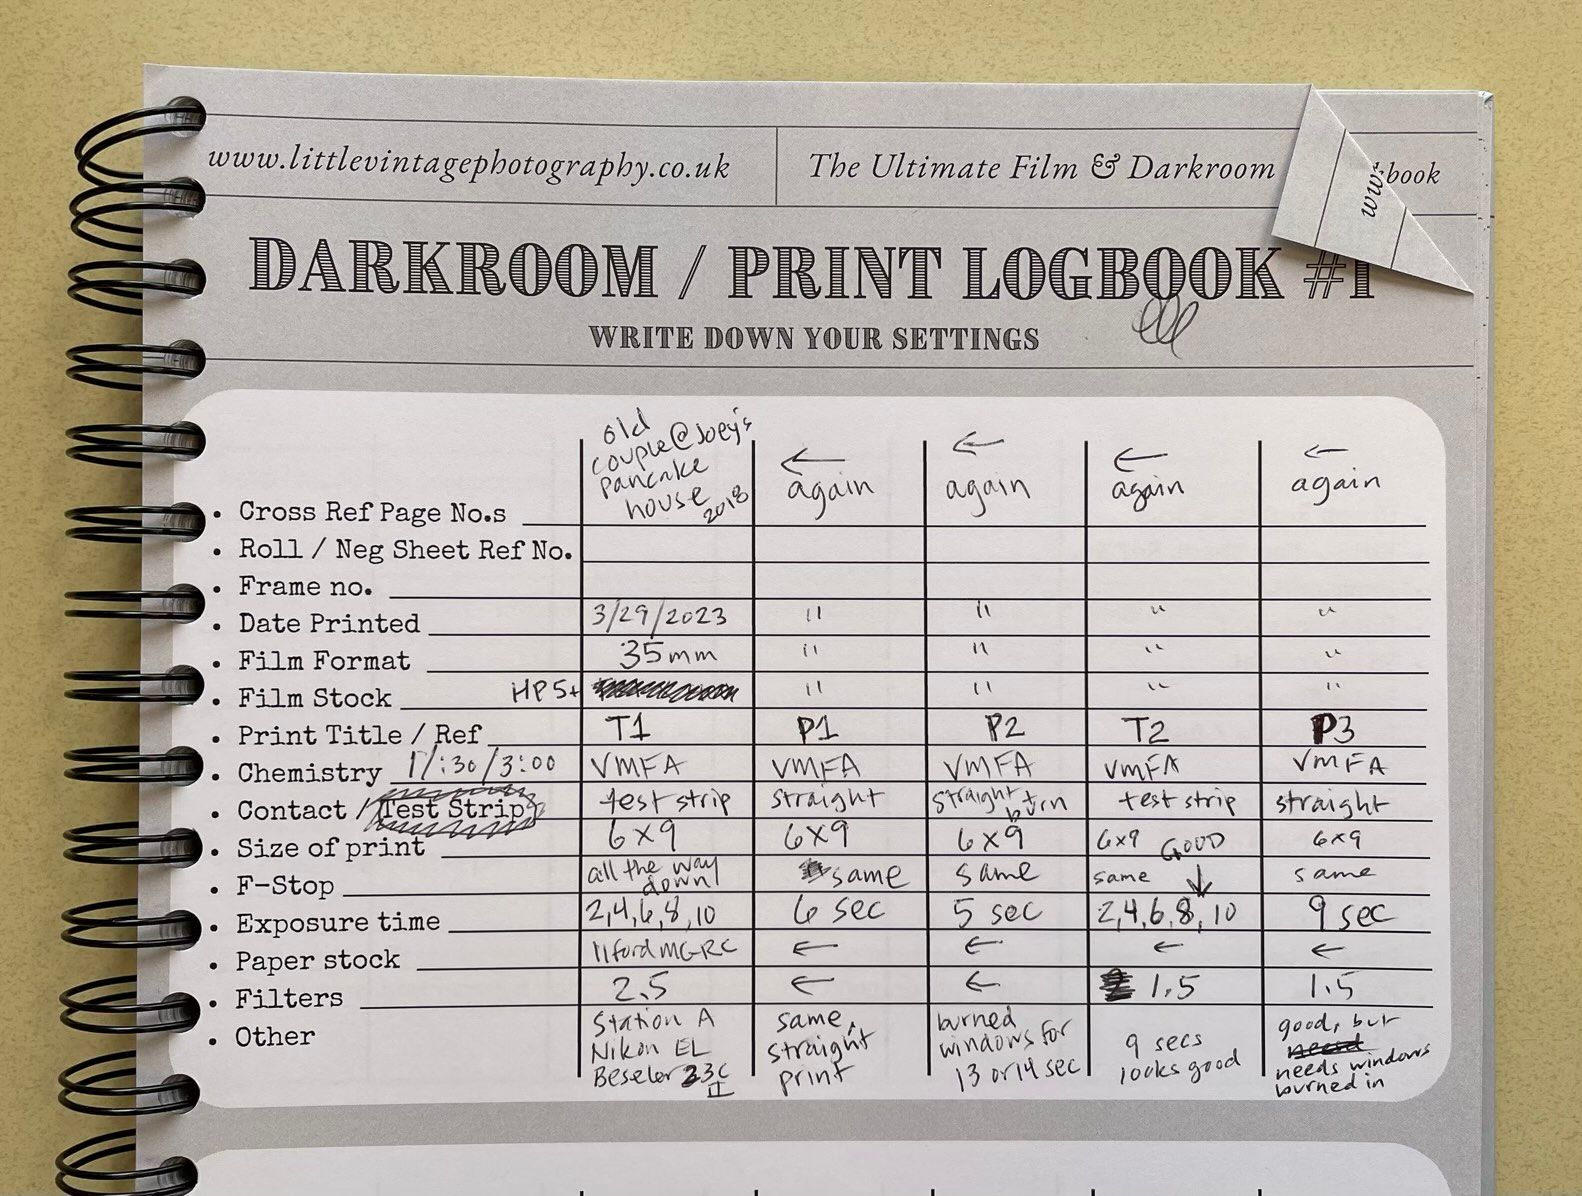 www.littlevintagephotography.co.uk
The Ultimate Film & Darkroom
book
www.
DARKROOM / PRINT LOGBOOK #1
WRITE DOWN YOUR SETTINGS
old couple@Joey's pancake house 2018 ← again ← again ← again ← again
• Cross Ref Page No.s
• Roll / Neg Sheet Ref No.
• Frame no.
• Date Printed 3/29/2023 " " " "
• Film Format 35mm " " " "
• Film Stock HP5+ " " " "
• Print Title / Ref T1 P1 P2 T2 P3
• Chemistry 1/:30/3:00 VMFA VMFA VMFA VMFA VMFA
• Contact / Test Strip test strip straight straight + burn test strip straight
• Size of print 6x9 6x9 6x9 6x9 GOOD ↓ 6x9
• F-Stop all the way down! same same same same
• Exposure time 2,4,6,8,10 6 sec 5 sec 2,4,6,8,10 9 sec
• Paper stock Ilford MG-RC ← ← ← ←
• Filters 2.5 ← ← 1.5 1.5
• Other
Station A
Nikon EL
Beseler 23C
II
same,
straight
print
burned
windows for
13 or 14 sec
9 secs
looks good
good, but
needs windows
burned in